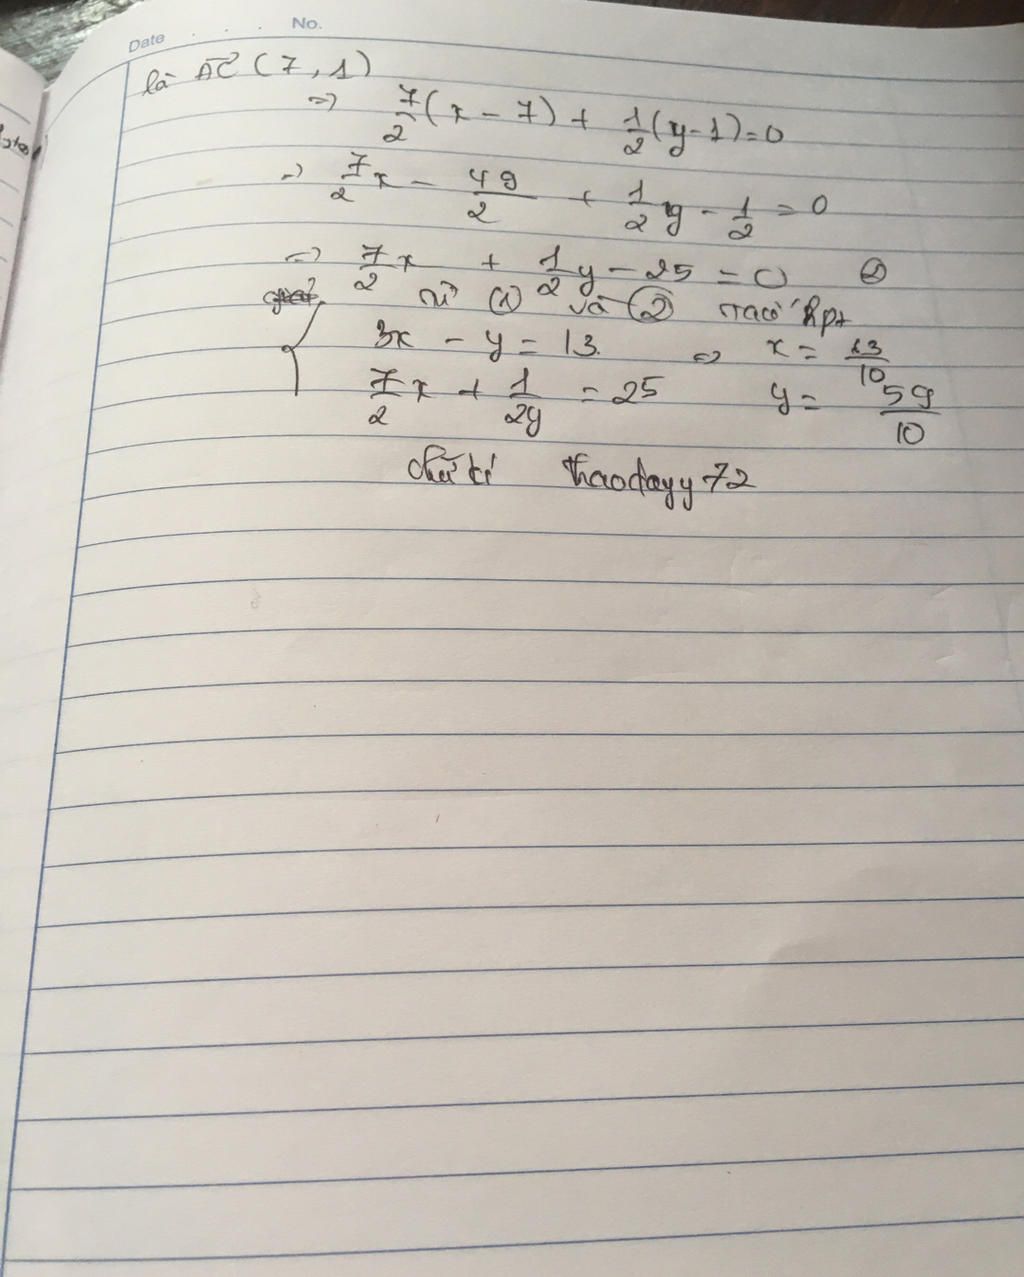 Date . . . No.
là AC (7, 1)
=> 7/2 (x - 7) + 1/2 (y - 1) = 0
=> 7/2 x - 49/2 + 1/2 y - 1/2 = 0
=> 7/2 x + 1/2 y - 25 = 0 (2)
từ (1) và (2) ta có hpt
{ 3x - y = 13. => x = 63/10
7/2 x + 1/2y = 25 y = 59/10
chữ kí thaodayy72